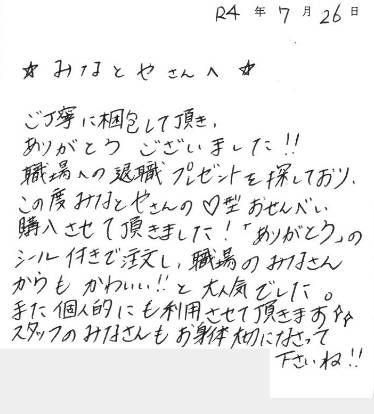 R4 年 7 月 26 日
☆ みなとやさんへ ☆
ご丁寧に梱包して頂き、
ありがとうございました!!
職場への退職プレゼントを探しており、
この度みなとやさんの♡型おせんべい
購入させて頂きました!「ありがとう」の
シール付きで注文し、職場のみなさん
からも かわいい!!と大人気でした。
また個人的にも利用させて頂きます♪♪
スタッフのみなさんもお身体大切になさって
下さいね!!